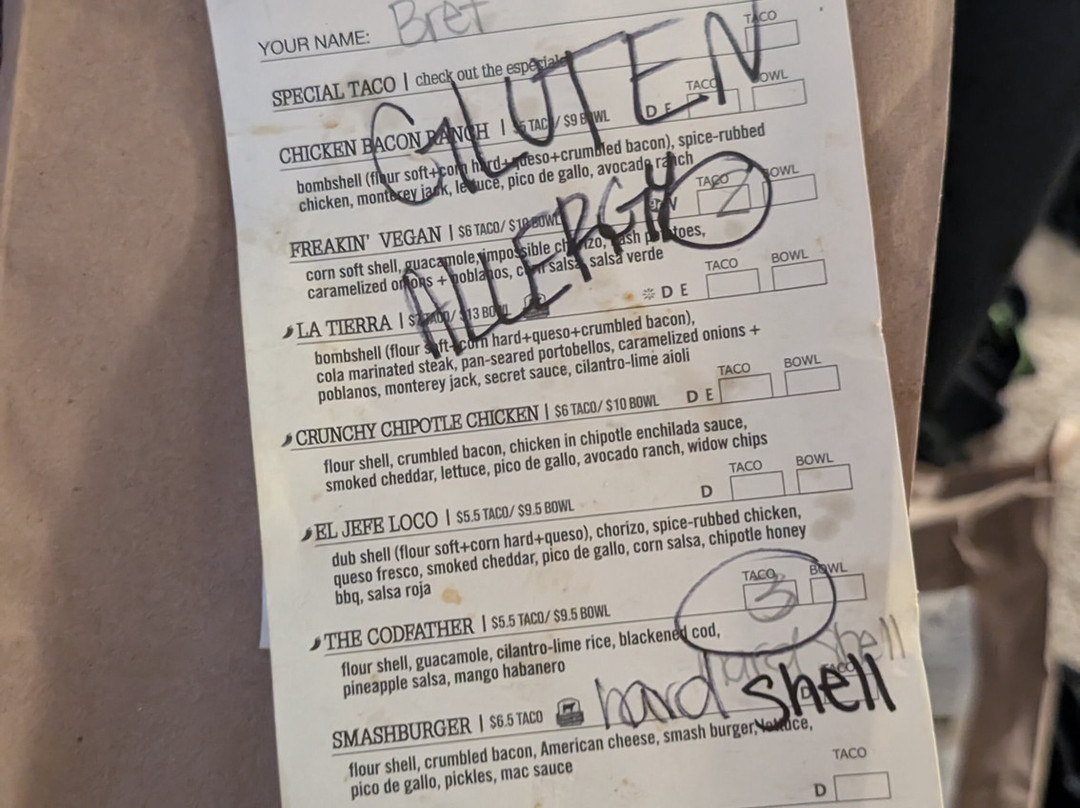 YOUR NAME: Bret
TACO
SPECIAL TACO | check out the especial
TACO BOWL
CHICKEN BACON RANCH | $5 TACO/ $9 BOWL D E
bombshell (flour soft+corn hard+queso+crumbled bacon), spice-rubbed
chicken, monterey jack, lettuce, pico de gallo, avocado ranch
GLUTEN
ALLERGY
TACO BOWL
FREAKIN' VEGAN | $6 TACO/ $10 BOWL 2
corn soft shell, guacamole, impossible chorizo, hash potatoes,
caramelized onions + poblanos, corn salsa, salsa verde
TACO BOWL
LA TIERRA | $7 TACO/ $13 BOWL D E
bombshell (flour soft+corn hard+queso+crumbled bacon),
cola marinated steak, pan-seared portobellos, caramelized onions +
poblanos, monterey jack, secret sauce, cilantro-lime aioli
TACO BOWL
CRUNCHY CHIPOTLE CHICKEN | $6 TACO/ $10 BOWL D E
flour shell, crumbled bacon, chicken in chipotle enchilada sauce,
smoked cheddar, lettuce, pico de gallo, avocado ranch, widow chips
TACO BOWL
EL JEFE LOCO | $5.5 TACO/ $9.5 BOWL D
dub shell (flour soft+corn hard+queso), chorizo, spice-rubbed chicken,
queso fresco, smoked cheddar, pico de gallo, corn salsa, chipotle honey
bbq, salsa roja
TACO BOWL
THE CODFATHER | $5.5 TACO/ $9.5 BOWL 3
flour shell, guacamole, cilantro-lime rice, blackened cod,
pineapple salsa, mango habanero
hard shell
hard shell
TACO
SMASHBURGER | $6.5 TACO
flour shell, crumbled bacon, American cheese, smash burger, lettuce,
pico de gallo, pickles, mac sauce
TACO
D